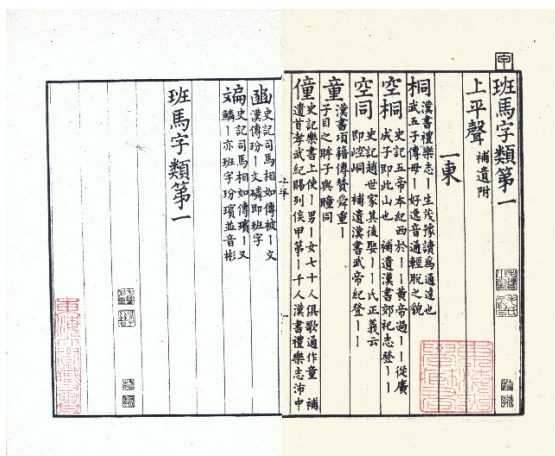 班馬字類第一
上平聲 補遺附
一東
桐 漢書禮樂志丨生茂豫讀爲通達也
武五子傳毋丨好逸音通輕脫之貌
空桐 史記五帝本紀西於丨丨黃帝過丨丨從廣
成子即此山也 補遺漢書郊祀志登丨丨
空同 史記趙世家其後娶丨丨氏正義云
即崆峒 補遺漢書武帝紀登丨丨
童 漢書項籍傳贊舜重丨
子目之眸子與瞳同
僮 史記樂書上使丨男丨女七十人俱歌通作童 補
遺首孝武紀賜列侯甲第丨千人漢書禮樂志沛中
上平
豳 史記司馬相如傳被丨文
漢傳玢丨文磷即班字
斒 史記司馬相如傳璸丨又
鱗丨亦班字玢璸並音彬
班馬字類第一